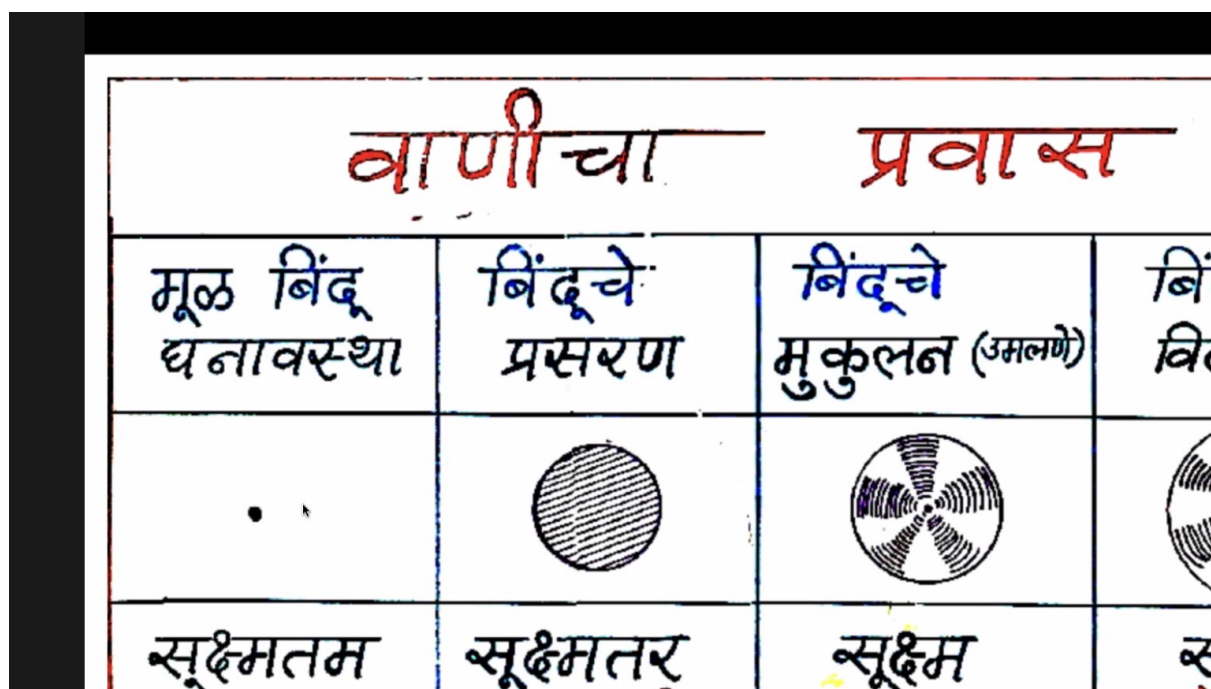 वाणीचा प्रवास
मूळ बिंदू
घनावस्था
बिंदूचे
प्रसरण
बिंदूचे
मुकुलन (उमलणे)
सूक्ष्मतम
सूक्ष्मतर
सूक्ष्म